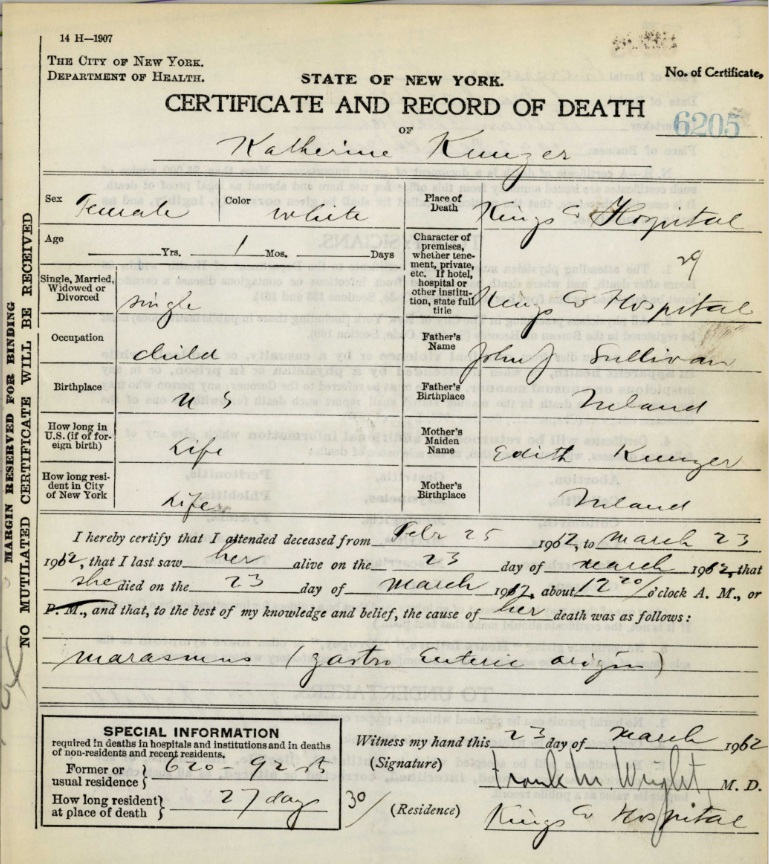 14 H—1907
THE CITY OF NEW YORK.
DEPARTMENT OF HEALTH.
STATE OF NEW YORK.
No. of Certificate,
CERTIFICATE AND RECORD OF DEATH
6205
OF
Katherine Kunzer
Sex Female Color White Place of Death Kings Co Hospital
Age Yrs. 1 Mos. Days
Character of premises, whether tenement, private, etc. If hotel, hospital or other institution, state full title Kings Co Hospital
29
Single, Married, Widowed or Divorced Single
Occupation child Father's Name John J Sullivan
Birthplace U S Father's Birthplace Ireland
How long in U.S. (if of foreign birth) Life Mother's Maiden Name Edith Kunzer
How long resident in City of New York Life Mother's Birthplace Ireland
I hereby certify that I attended deceased from Febr 25 1912, to March 23
1912, that I last saw her alive on the 23 day of March 1912, that
she died on the 23 day of March 1912, about 12 20/ o'clock A. M., or
P. M., and that, to the best of my knowledge and belief, the cause of her death was as follows:
Marasmus (gastro Enteric origin)
SPECIAL INFORMATION
required in deaths in hospitals and institutions and in deaths
of non-residents and recent residents.
Former or usual residence } 620 - 92 st
How long resident at place of death } 27 days
30/
Witness my hand this 23 day of March 1912
(Signature) Frank M. Wright, M. D.
(Residence) Kings Co Hospital
MARGIN RESERVED FOR BINDING
NO MUTILATED CERTIFICATE WILL BE RECEIVED